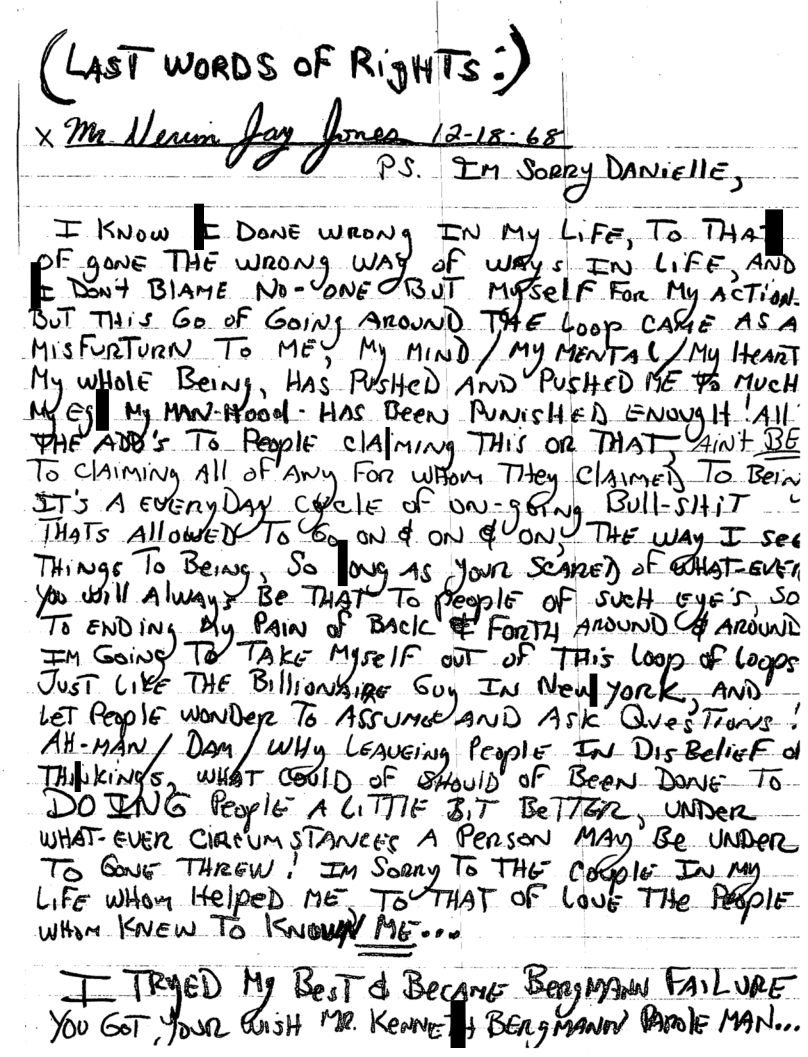 (LAST WORDS OF RigHTS:)
x Mr. Nerim Jay Jones 12-18-68
PS. Im SORRy DANiElle,
I KNOW I DONE WRONg IN My LiFE, To THAT
OF gONE THE WRONg WAy of WAys IN LiFE, AND
I DON't BLAME NO-ONE BUT MySElF FoR My ACTiON.
BUT THis Go oF GoiNg AROUND THE Loop CAME AS A
MisFURTURN To ME, My MiND/My MENTAL/My HEART
My WHolE BEiNg, HAS PUSHED AND PUSHED ME To MUCH
My Eg My MAN-HooD - HAS BEEN PUNisHED ENOUgH! All
THE ADD's To PEoplE clAiMiNg THis OR THAT, AiN't BE
To clAiMiNg All oF ANy FoR WHoM THEy ClAiMED To BEiN
IT's A EVERyDAy CyclE oF ON-goiNg BUll-SHiT
THATs AllowED To Go ON & ON & ON, THE WAy I sEE
THiNgs To BEiNg, So long AS yoUR SCARED oF WHAT-EVER
you will AlwAys BE THAT To pEoplE oF SUCH EyE's, So
To ENDiNg My PAiN oF BACk & FoRTH ARoUND & ARoUND
IM GoiNg To TAKE MySElF oUT oF THis Loop oF loops
JUST LiKE THE BillioNAiRE GUy IN NEw yoRk, AND
LET PEoplE WoNDER To ASSUME AND ASk QUEsTioNs!
AH-MAN/DAM/WHy LEAVEiNg PEoplE IN DisBEliEF oF
THiNkiNgs, WHAT CoUlD oF SHoUlD oF BEEN DoNE To
DOING PEoplE A LiTTlE BiT BETTER, UNDER
WHAT-EVER CiRCUMSTANCEs A PERSoN MAy BE UNDER
To GoNE THREW! IM SoRRy To THE CoUplE IN My
LiFE WHoM HElpED ME, To THAT oF LoVE THE PEoplE
WHoM KNEW To KNowN ME...
I TRyED My BEsT & BECAME BERgMANN FAiLURE
YoU GoT yoUR wisH MR. KENNETH BERgMANN PARolE MAN...